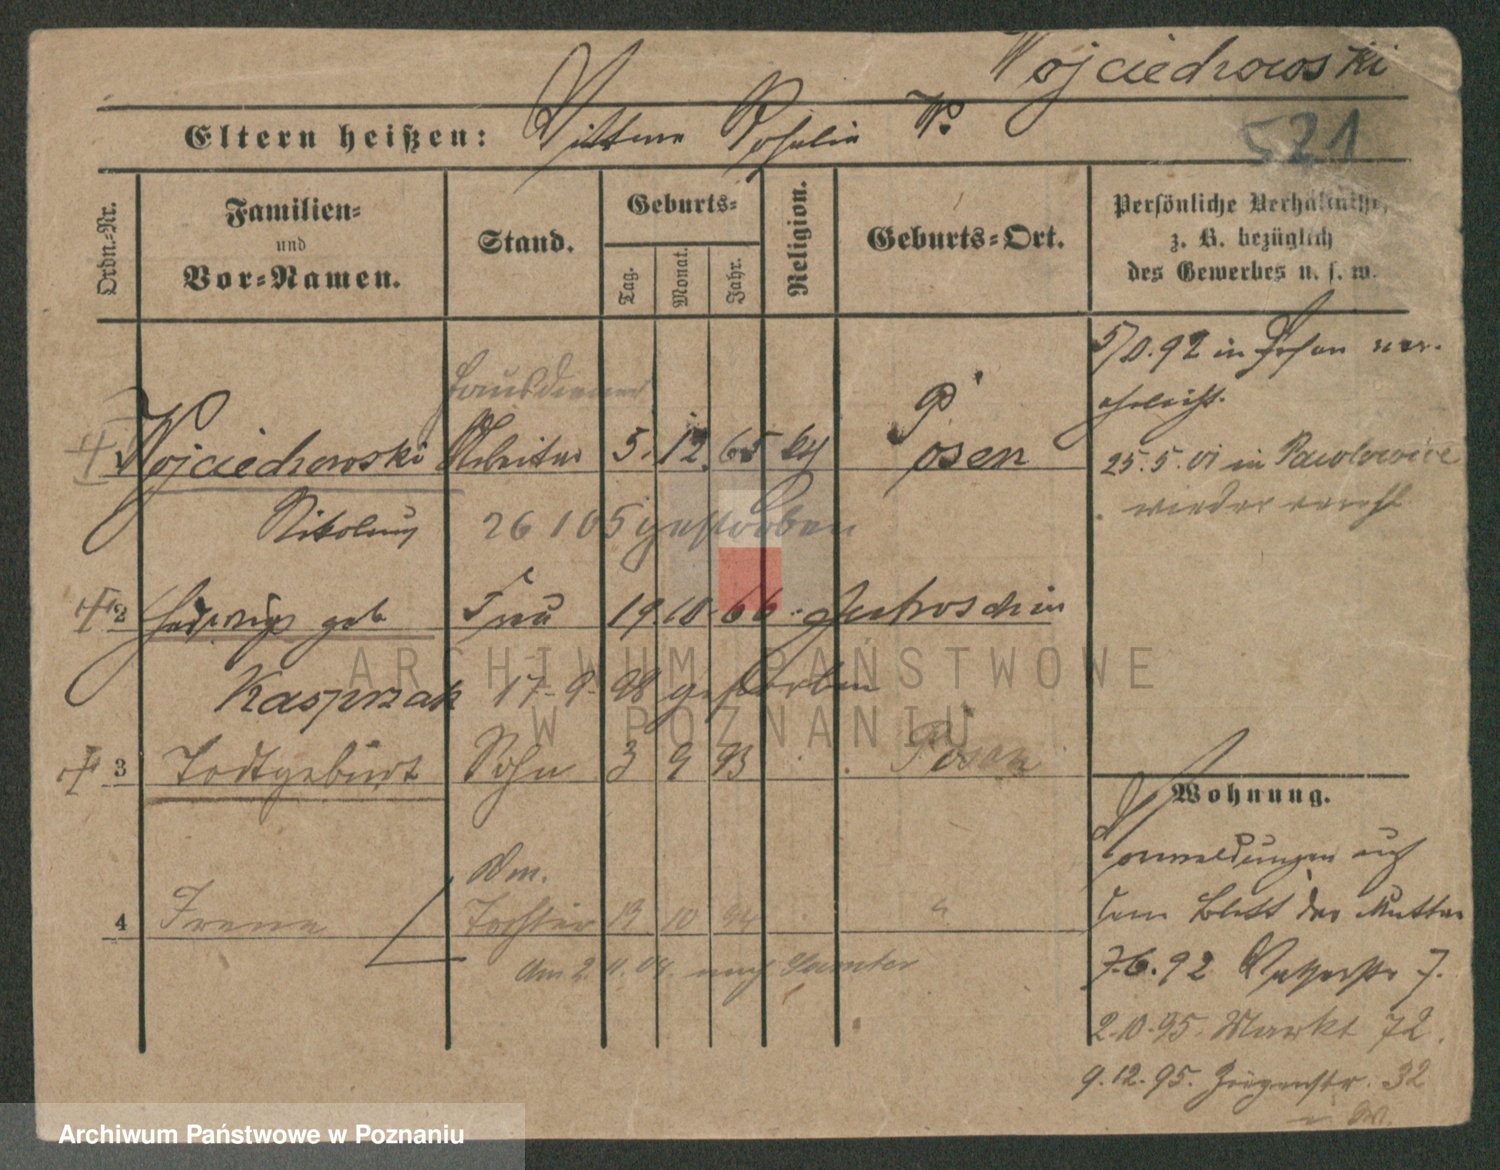 Wojciechowski
521
Eltern heißen: Wittwe Rosalie W.
Ordn.-Nr.
Familien-
und
Vor-Namen.
Stand.
Geburts-
Tag.
Monat.
Jahr.
Religion.
Geburts-Ort.
Persönliche Verhältnisse,
z. B. bezüglich
des Gewerbes u. s. w.
in Posen ver-
ehelicht.
Hausdiener
Wojciechowski Arbeiter 5. 12. 65 kth Posen
25.5.01 in Pawlowice
wieder verehl
Nikolaus 26 1 05 gestorben
2 Hedwig geb. Frau 19. 10. 66. Jutroschin
Kasprzak 17. 9. 98 gestorben
3 Todtgeburt Sohn 3 9 93 Posen
Wohnung.
Vormeldungen auf
dem Blatt der Mutter
4 Irene Tochter 13 10 94 "
nach Samter
7.6.92 7.
2.10.95. Markt 72.
9.12.95. Ziegenstr. 32
ARCHIWUM PAŃSTWOWE
W POZNANIU
Archiwum Państwowe w Poznaniu